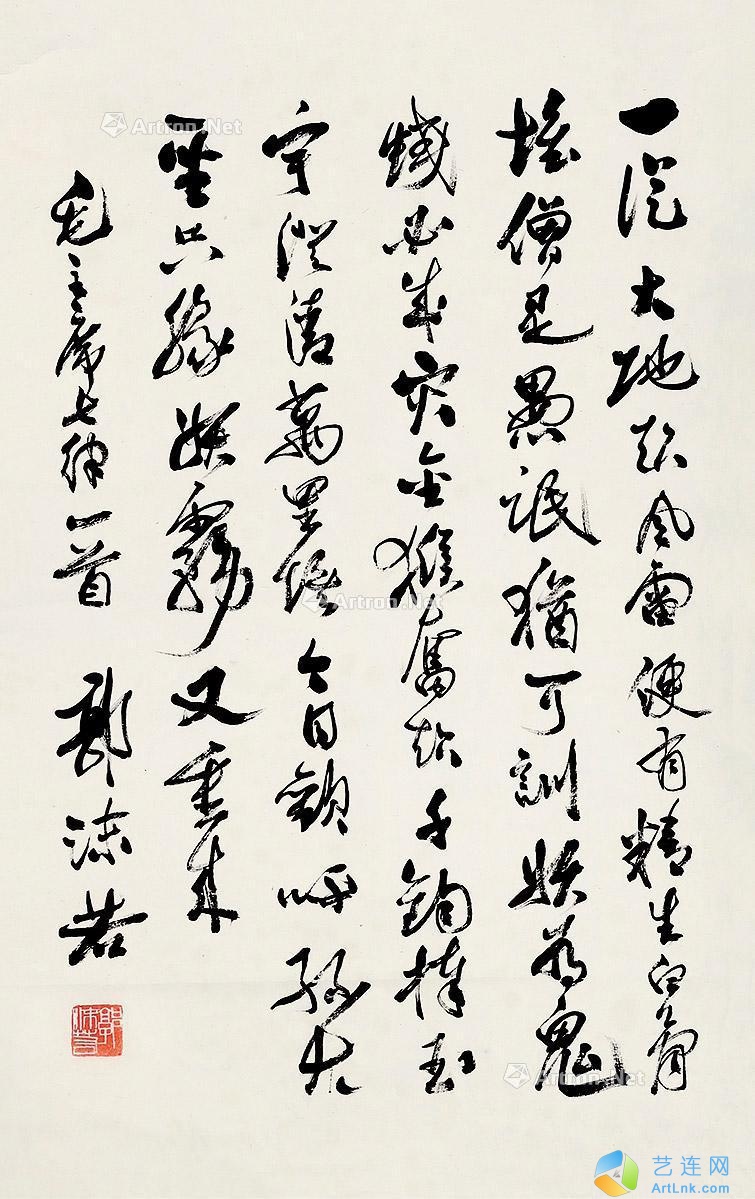 一從大地起風雷便有精生白骨
堆僧是愚氓猶可訓妖為鬼
蜮必成災金猴奮起千鈞棒玉
宇澄清萬里埃今日歡呼孫大
聖只緣妖霧又重來
毛主席七律一首 郭沫若
郭沫若
Artron.Net
Artron.Net
Artron.Net
艺连网
ArtLnk.com